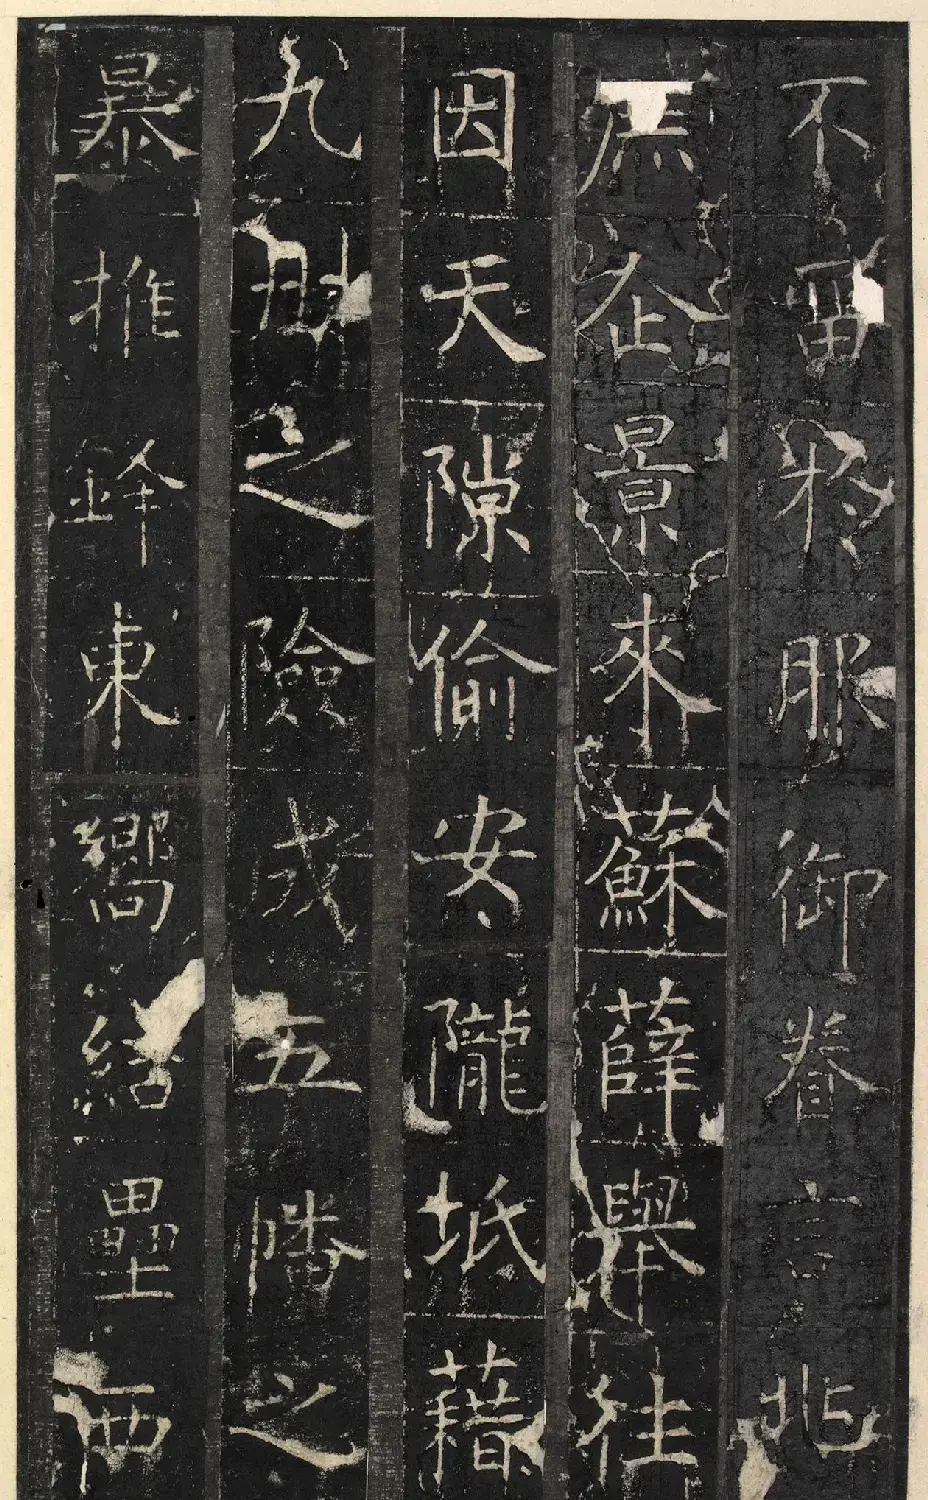 不畱於服御眷言北
庶企景來蘇薛舉往
因天隙偷安隴坻藉
九之險成五幡之
暴推鋒東嚮結壘西